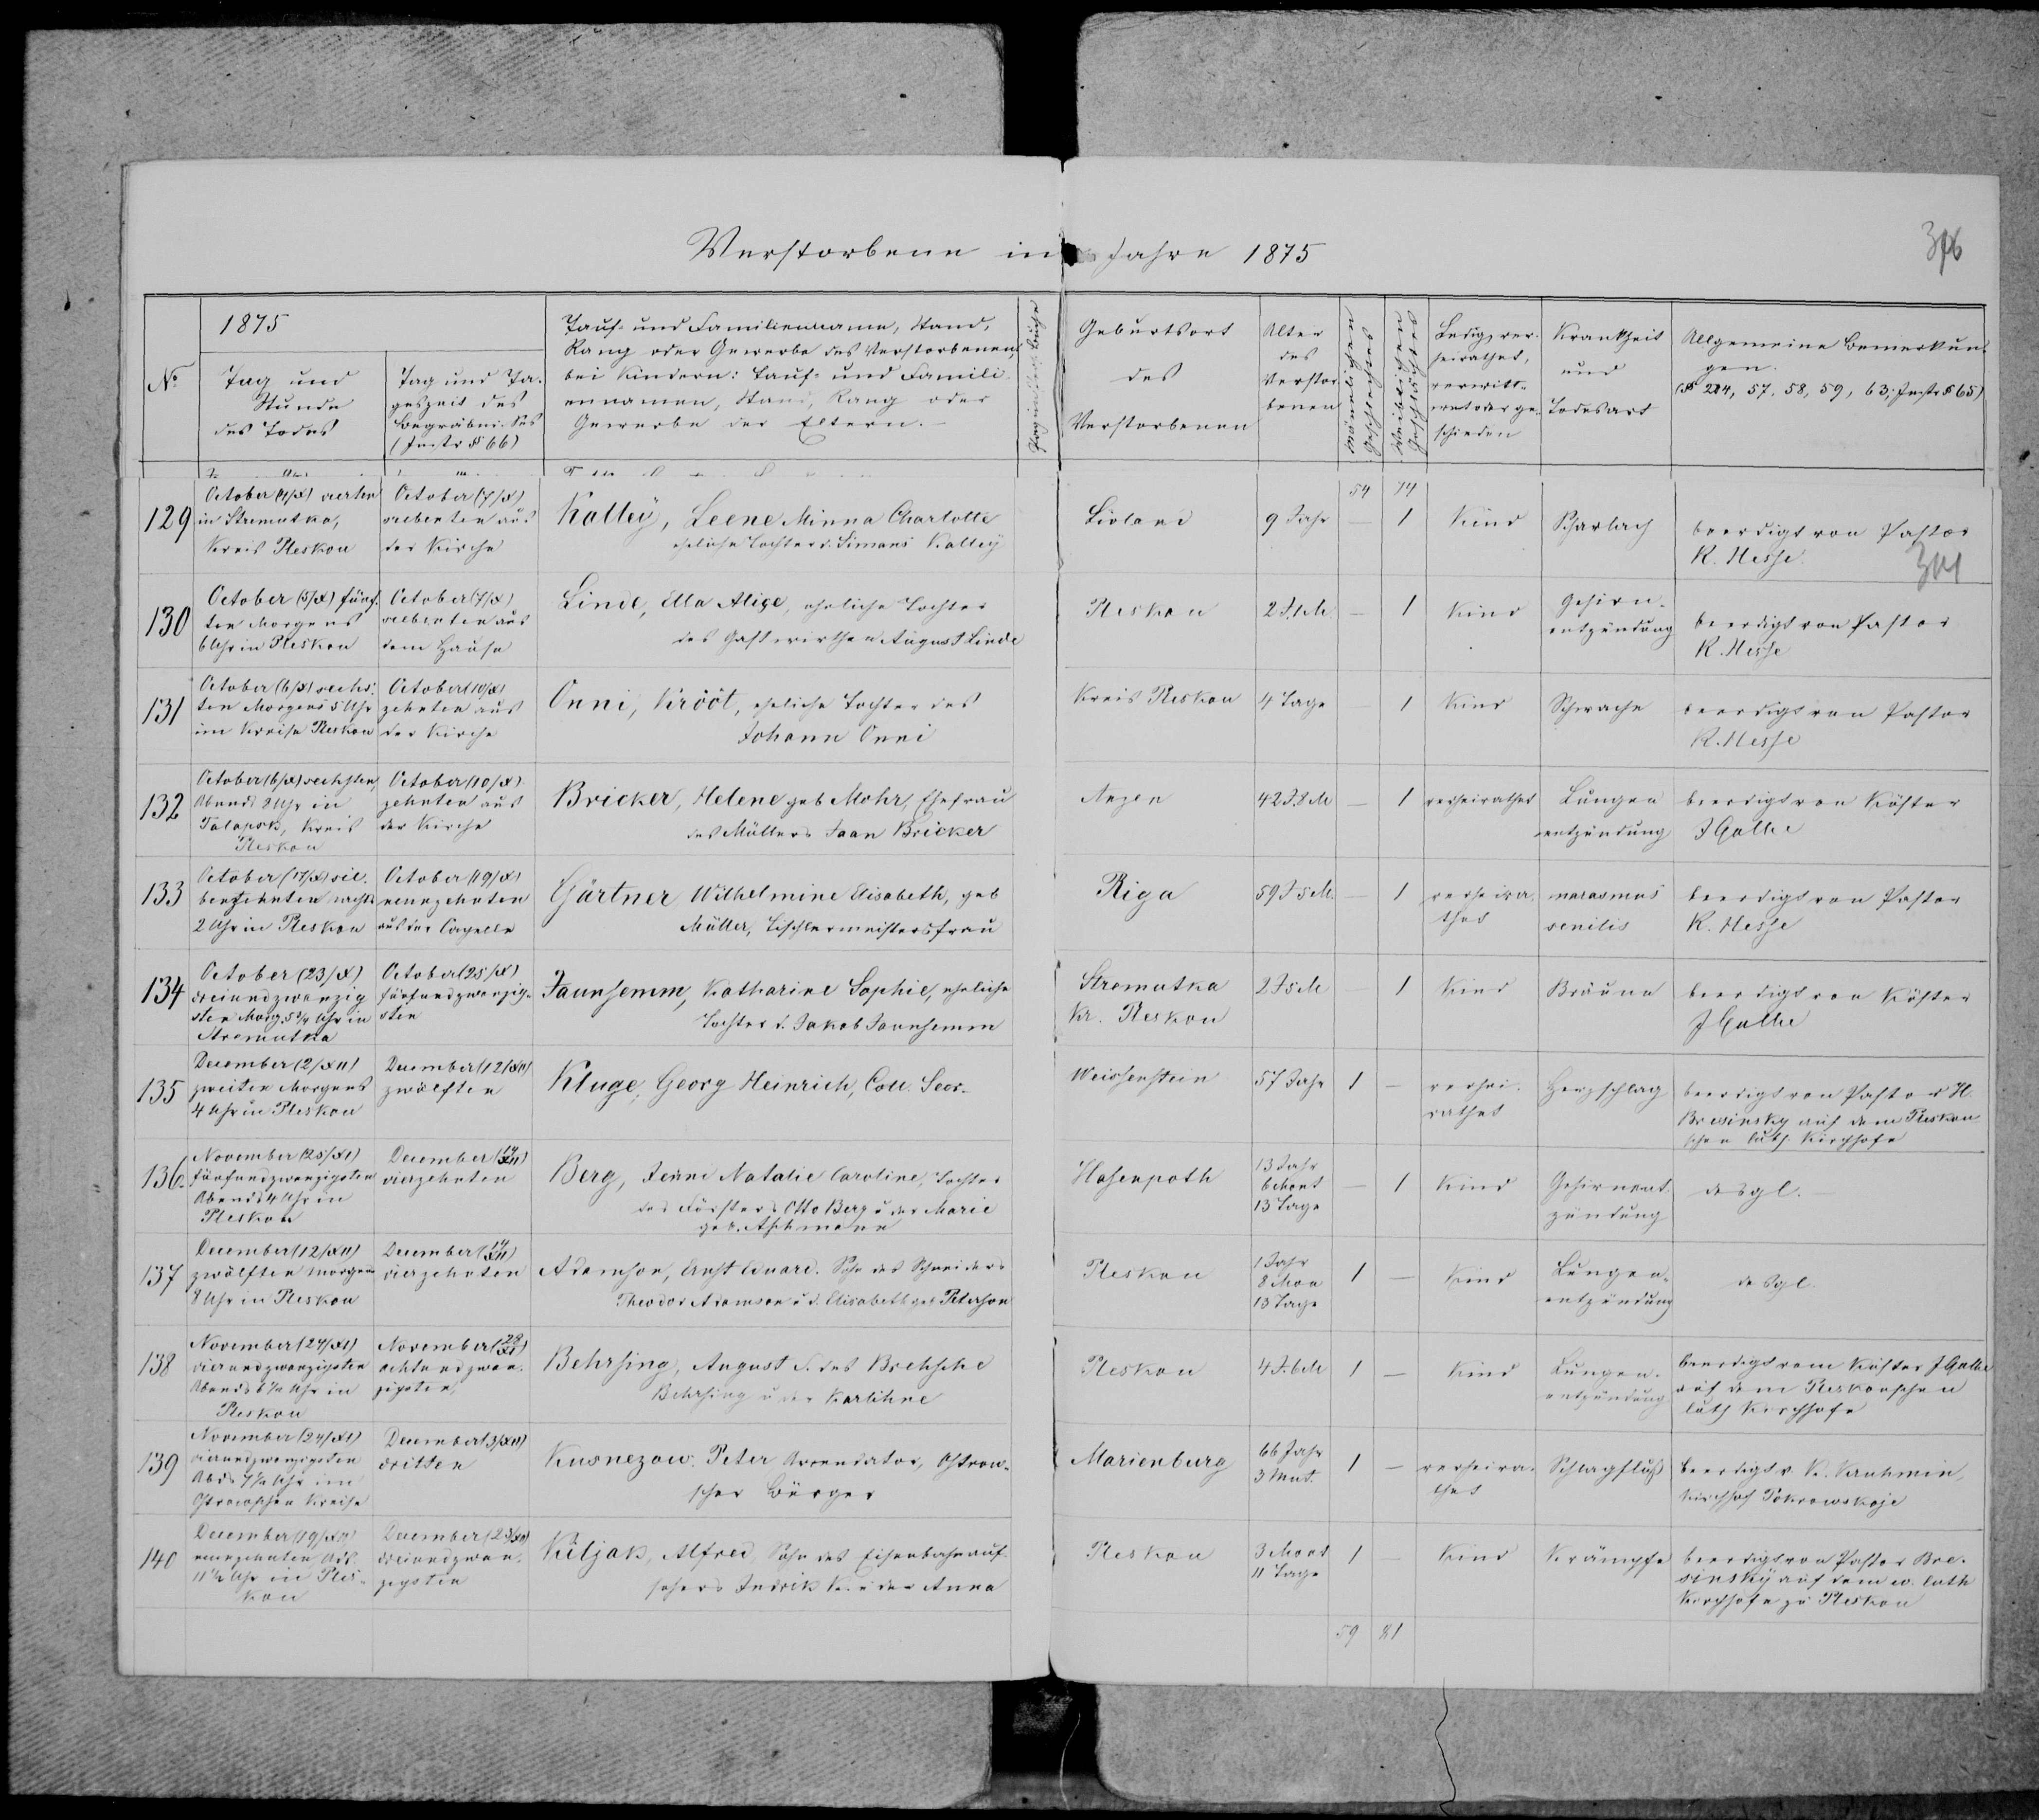 Verstorbene im Jahre 1875
306
№
1875
Tag und
Stunde
des Todes
Tag und Ta-
geszeit des
Begräbnisses
(Instr § 66)
Tauf- und Familienname, Stand,
Rang oder Gewerbe des Verstorbenen,
bei Kindern: Tauf- und Famili-
ennamen, Stand, Rang oder
Gewerbe der Eltern.
Geburtsort
des
Verstorbenen
Alter
des
Verstor-
benen
Männlichen
Geschlechtes
Weiblichen
Geschlechtes
Ledig, ver-
heirathet,
verwitt-
wet oder ge-
schieden
Krankheit
und
Todesart
Allgemeine Bemerkun-
gen.
57, 58, 59, 63; Instr § 65)
54 74
129
October (4/X) vierten
in Stremutka,
Kreis Pleskau
October (7/X)
siebenten aus
der Kirche
Kalley, Leene Minna Charlotte
eheliche Tochter d. Simans Kalley
Livland
9 Jahr
—
1
Kind
Scharlach
beerdigt von Pastor
K. Hesse.
301
130
October (5/X) fünf-
ten Morgens
6 Uhr in Pleskau
October (7/X)
siebenten aus
dem Hause
Linde, Ella Alice, eheliche Tochter
des Gastwirthen August Linde
Pleskau
2 J. 1 M.
—
1
Kind
Gehirn-
entzündung
beerdigt von Pastor
K. Hesse
131
October (6/X) sechs-
ten Morgens 5 Uhr
im Kreise Pleskau
October (10/X)
zehnten aus
der Kirche
Onni, Krööt, eheliche Tochter des
Johann Onni
Kreis Pleskau
4 Tage
—
1
Kind
Schwäche
beerdigt von Pastor
K. Hesse
132
October (6/X) sechsten,
Abends 8 Uhr in
Talapsk, Kreis
Pleskau
October (10/X)
zehnten aus
der Kirche
Bricker, Helene geb Mohr, Ehefrau
des Müllers Jaan Bricker
Anzen
42 J. 8 M
—
1
verheirathet
Lungen
entzündung
beerdigt von Küster
J
133
October (17/X) sie-
benzehnten nachts
2 Uhr in Pleskau
October (19/X)
neunzehnten
aus der Capelle
Gärtner Wilhelmine Elisabeth, geb
Müller, Tischlermeistersfrau
Riga
59 J 5 M.
—
1
verheira-
thet
marasmus
senilis
beerdigt von Pastor
K. Hesse
134
October (23/X)
dreiundzwanzig
sten Morg. 5¾ Uhr in
Stremutka
October (25/X)
fünfundzwanzig-
sten
Jaunsemm, Katharine Sophie, eheliche
Tochter d. Jakob Jaunsemm
Stremutka
Kr. Pleskau
2 J 5 M
—
1
Kind
Bräune
beerdigt von Küster
J
135
December (2/XII)
zweiten Morgens
4 Uhr in Pleskau
December (12/XII)
zwölften
Kluge, Georg Heinrich, Coll Secr.
Weissenstein
57 Jahr
1
—
verhei-
rathet
Herzschlag
beerdigt von Pastor H.
Bresinsky auf dem Pleskau
schen luth. Kirchhofe
136.
November (25/XI)
fünfundzwanzigsten
Abends 4 Uhr in
Pleskau
December (14/XII)
vierzehnten
Berg, Jenni Natalie Caroline, Tochter
des Försters Otto Berg u der Marie
geb. Aschmann
Hasenpoth
13 Jahr
6 Mont
13 Tage
—
1
Kind
Gehirnent-
zündung
desgl. —
137
December (12/XII)
zwölften Morgens
8 Uhr in Pleskau
December (14/XII)
vierzehnten
Adamson, Ernst Eduard. Sohn des Schneiders
Theodor Adamson u d. Elisabeth geb Peterson
Pleskau
1 Jahr
8 Mon
13 Tage
1
—
Kind
Lungen-
entzündung
desgl.
138
November (24/XI)
vierundzwanzigsten
Abends 6½ Uhr in
Pleskau
November (28/XI)
achtundzwan-
zigsten,
Behrsing, August S. des Brehsche
Behrsing u der Karlihne
Pleskau
4 J. 6 M
1
—
Kind
Lungen-
entzündung
beerdigt vom Küster J
auf dem Pleskauschen
luth Kirchhofe
139
November (24/XI)
vierundzwanzigsten
Abds 7½ Uhr im
Ostrowschen Kreise
December (3/XII)
dritten
Kusnezow. Peter Arrendator, Ostrow-
scher Bürger
Marienburg
66 Jahr
3 Mnt.
1
—
verheira-
thet
Schlagfluß
beerdigt v. K.
Kirchhof Pokrowskoje
140
December (19/XII)
neunzehnten Abd.
11½ Uhr in Ples-
kau
December (23/XII)
dreiundzwan-
zigsten
Kiljak, Alfred, Sohn des Eisenbahnauf-
sehers Indrik K. u der Anna
Pleskau
3 Mont
11 Tage
1
—
Kind
Krämpfe
beerdigt von Pastor Bre-
sinsky auf dem ev. luth
Kirchhofe zu Pleskau
59 81